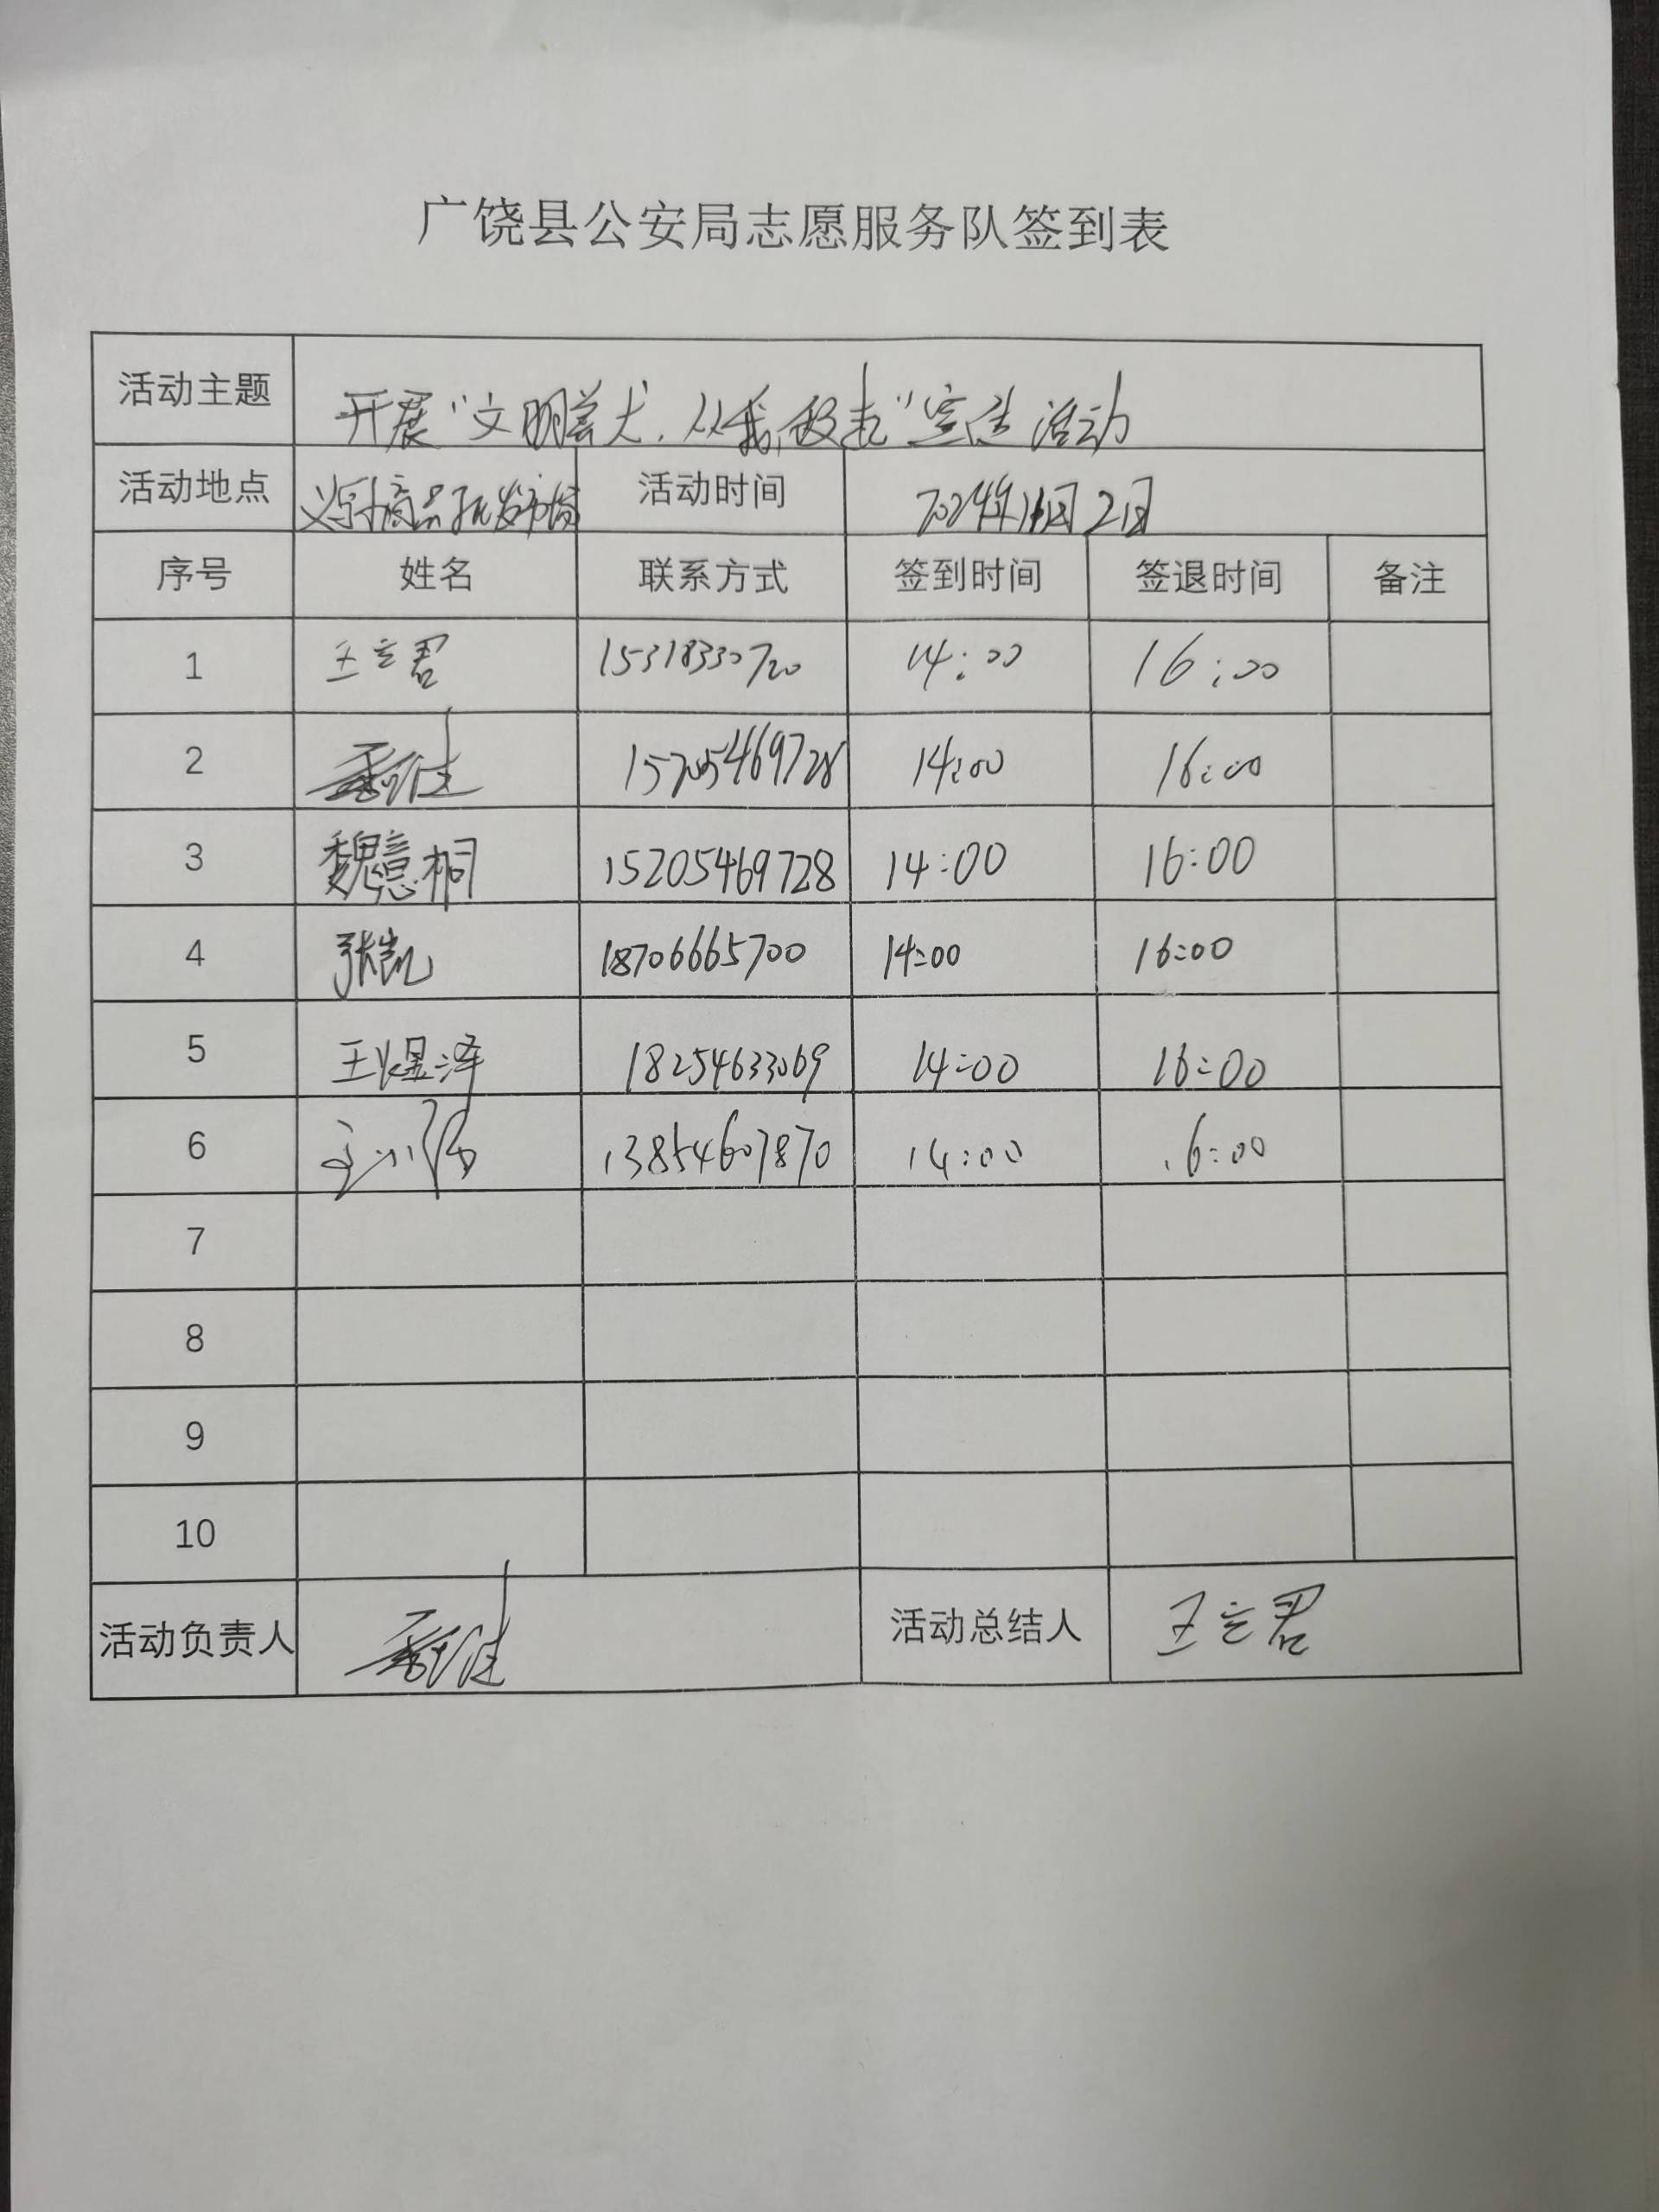 广饶县公安局志愿服务队签到表
活动主题 开展“文明养犬，从我做起”宣传活动
活动地点 义乌小商品批发市场 活动时间 2024年11月2日
序号 姓名 联系方式 签到时间 签退时间 备注
1 王立君 15318330720 14:00 16:00
2 15205469728 14:00 16:00
3 魏意桐 15205469728 14:00 16:00
4 张凯 18706665700 14:00 16:00
5 王煜泽 18254633069 14:00 16:00
6 13854607870 14:00 16:00
7
8
9
10
活动负责人 活动总结人 王立君